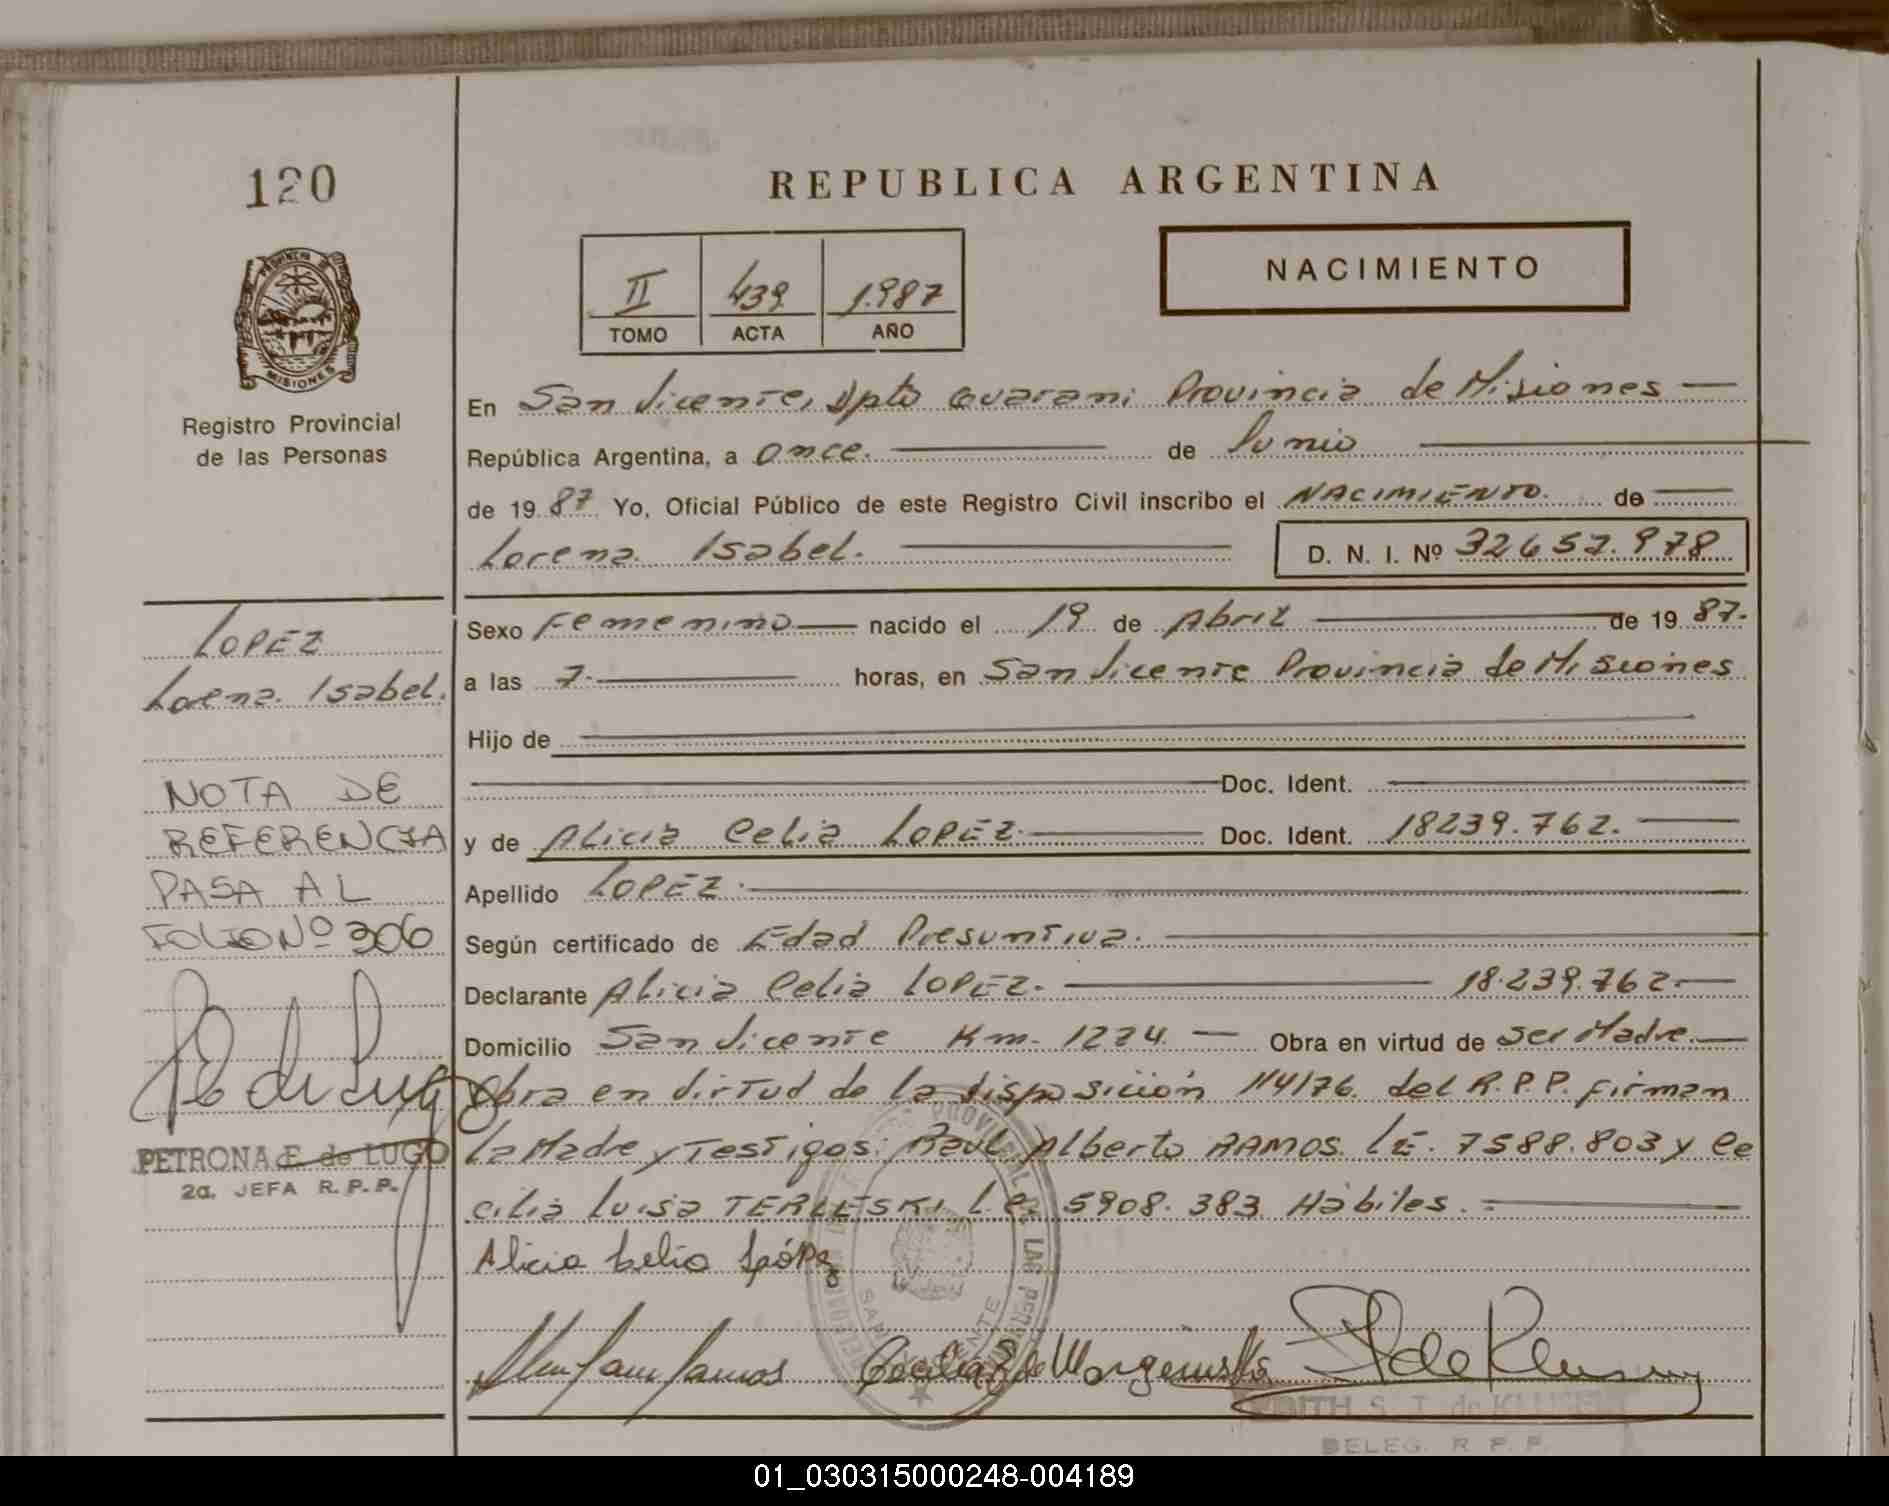 120
REPUBLICA ARGENTINA
II 439 1.987
TOMO ACTA AÑO
NACIMIENTO
PROVINCIA DE
MISIONES
Registro Provincial
de las Personas
En San Vicente, Dpto Guarani Provincia de Misiones
República Argentina, a once. de Junio
de 19 87 Yo, Oficial Público de este Registro Civil inscribo el NACIMIENTO. de
Lorena Isabel. D. N. I. Nº 32657.978
LOPEZ
Lorena Isabel.
Sexo Femenino nacido el 19 de Abril de 19 87.
a las 7. horas, en San Vicente Provincia de Misiones
Hijo de
Doc. Ident.
y de Alicia Celia LOPEZ. Doc. Ident. 18239.762.
Apellido LOPEZ.
Según certificado de Edad Presuntiva.
Declarante Alicia Celia LOPEZ. 18.239.762.
Domicilio San Vicente Km. 1224. Obra en virtud de ser Madre.
Obra en virtud de la disposición 114/76. del R.P.P. firman
la Madre y Testigos: Raul Alberto RAMOS. L.E. 7588.803 y Ce
cilia Luisa TERLESKI L.C. 5908.383. Hábiles.
Alicia Celia Lópe
NOTA DE
REFERENCIA
PASA AL
FOLIO Nº 306
PETRONA E. de LUGO
2a. JEFA R.P.P.
EDITH S. T. de
DELEG. R. P. P.
01_030315000248-004189